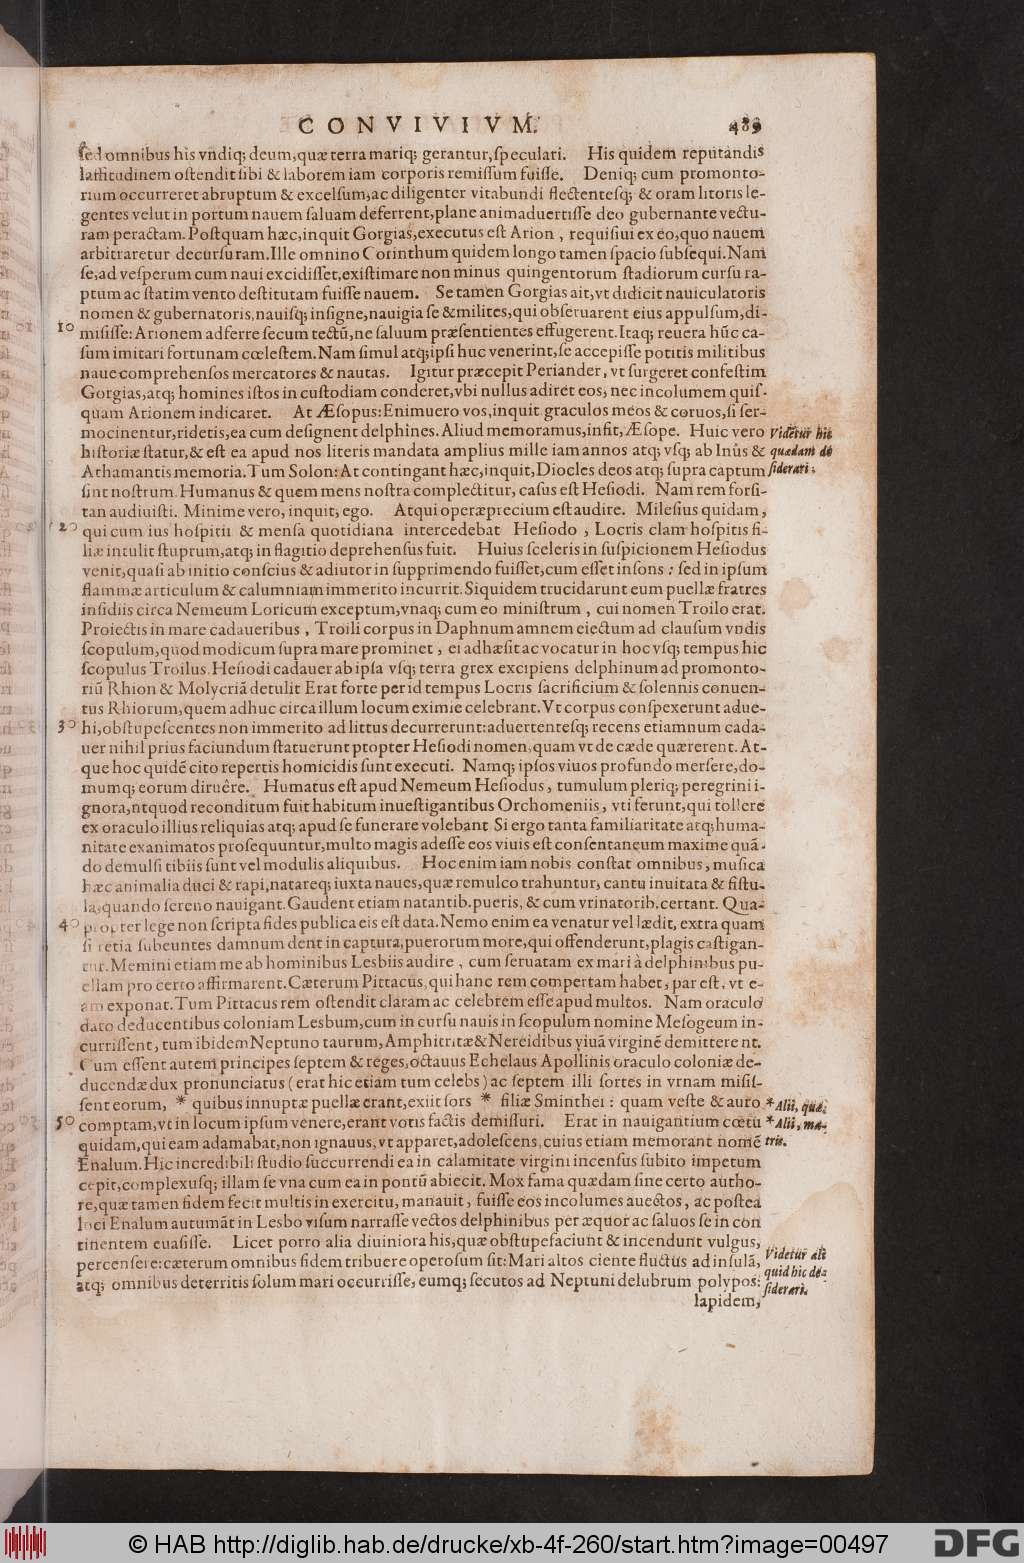 CONVIVIVM. 489
sed omnibus his vndiq; deum, quæ terra mariq; gerantur, speculari. His quidem reputandis
lassitudinem ostendit sibi & laborem iam corporis remissum fuisse. Deniq; cum promonto-
rium occurreret abruptum & excelsum, ac diligenter vitabundi flectentesq; & oram litoris le-
gentes velut in portum nauem saluam deferrent, plane animaduertisse deo gubernante vectu-
ram peractam. Postquam hæc, inquit Gorgias, executus est Arion, requisiui ex eo, quo nauem
arbitraretur decursuram. Ille omnino Corinthum quidem longo tamen spacio subsequi. Nam
se, ad vesperum cum naui excidisset, existimare non minus quingentorum stadiorum cursu ra-
ptum ac statim vento destitutam fuisse nauem. Se tamen Gorgias ait, vt didicit nauiculatoris
nomen & gubernatoris, nauisq; insigne, nauigia se & milites, qui obseruarent eius appulsum, di-
10 misisse: Arionem adferre secum tectū, ne saluum præsentientes effugerent. Itaq; reuera hūc ca-
sum imitari fortunam cœlestem. Nam simul atq; ipsi huc venerint, se accepisse potitis militibus
naue comprehensos mercatores & nautas. Igitur præcepit Periander, vt surgeret confestim
Gorgias, atq; homines istos in custodiam conderet, vbi nullus adiret eos, nec incolumem quis-
quam Arionem indicaret. At Æsopus: Enimuero vos, inquit graculos meos & coruos, si ser-
mocinentur, ridetis, ea cum designent delphines. Aliud memoramus, infit, Æsope. Huic vero
Videtur hic
historiæ statur, & est ea apud nos literis mandata amplius mille iam annos atq; vsq; ab Inûs &
quædam de
Athamantis memoria. Tum Solon: At contingant hæc, inquit, Diocles deos atq; supra captum
siderari:
sint nostrum. Humanus & quem mens nostra complectitur, casus est Hesiodi. Nam rem forsi-
tan audiuisti. Minime vero, inquit, ego. Atqui operæprecium est audire. Milesius quidam,
20 qui cum ius hospitii & mensa quotidiana intercedebat Hesiodo, Locris clam hospitis fi-
liæ intulit stuprum, atq; in flagitio deprehensus fuit. Huius sceleris in suspicionem Hesiodus
venit, quasi ab initio conscius & adiutor in supprimendo fuisset, cum esset insons: sed in ipsum
flammæ articulum & calumniam immerito incurrit. Siquidem trucidarunt eum puellæ fratres
insidiis circa Nemeum Loricum exceptum, vnaq; cum eo ministrum, cui nomen Troilo erat.
Proiectis in mare cadaueribus, Troili corpus in Daphnum amnem eiectum ad clausum vndis
scopulum, quod modicum supra mare prominet, ei adhæsit ac vocatur in hoc vsq; tempus hic
scopulus Troilus. Hesiodi cadauer ab ipsa vsq; terra grex excipiens delphinum ad promonto-
riū Rhion & Molycriā detulit Erat forte per id tempus Locris sacrificium & solennis conuen-
tus Rhiorum, quem adhuc circa illum locum eximie celebrant. Vt corpus conspexerunt adue-
30 hi, obstupescentes non immerito ad littus decurrerunt: aduertentesq; recens etiamnum cada-
uer nihil prius faciundum statuerunt propter Hesiodi nomen, quam vt de cæde quærerent. At-
que hoc quidē cito repertis homicidis sunt executi. Namq; ipsos viuos profundo mersere, do-
mumq; eorum diruêre. Humatus est apud Nemeum Hesiodus, tumulum pleriq; peregrini i-
gnorant, quod reconditum fuit habitum inuestigantibus Orchomeniis, vti ferunt, qui tollere
ex oraculo illius reliquias atq; apud se funerare volebant Si ergo tanta familiaritate atq; huma-
nitate exanimatos prosequuntur, multo magis adesse eos viuis est consentaneum maxime quā-
do demulsi tibiis sunt vel modulis aliquibus. Hoc enim iam nobis constat omnibus, musica
hæc animalia duci & rapi, natareq; iuxta naues, quæ remulco trahuntur, cantu inuitata & fistu-
la, quando sereno nauigant. Gaudent etiam natantib. pueris, & cum vrinatorib. certant. Qua-
40 propter lege non scripta fides publica eis est data. Nemo enim ea venatur vel lædit, extra quam
si retia subeuntes damnum dent in captura, puerorum more, qui offenderunt, plagis castigan-
tur. Memini etiam me ab hominibus Lesbiis audire, cum seruatam ex mari à delphinibus pu-
ellam pro certo affirmarent. Cæterum Pittacus, qui hanc rem compertam habet, par est, vt e-
am exponat. Tum Pittacus rem ostendit claram ac celebrem esse apud multos. Nam oraculo
dato deducentibus coloniam Lesbum, cum in cursu nauis in scopulum nomine Mesogeum in-
currissent, tum ibidem Neptuno taurum, Amphitritæ & Nereidibus viuā virginē demitterent.
Cum essent autem principes septem & reges, octauus Echelaus Apollinis oraculo coloniæ de-
ducendæ dux pronunciatus (erat hic etiam tum celebs) ac septem illi sortes in vrnam misis-
sent eorum, * quibus innuptæ puellæ erant, exiit sors * filiæ Sminthei: quam veste & auro
* Alii, quæ.
50 comptam, vt in locum ipsum venere, erant votis factis demissuri. Erat in nauigantium cœtu
* Alii, ma-
quidam, qui eam adamabat, non ignauus, vt apparet, adolescens, cuius etiam memorant nomē
tris.
Enalum. Hic incredibili studio succurrendi ea in calamitate virgini incensus subito impetum
cepit, complexusq; illam se vna cum ea in pontū abiecit. Mox fama quædam sine certo autho-
re, quæ tamen fidem fecit multis in exercitu, manauit, fuisse eos incolumes auectos, ac postea
loci Enalum autumāt in Lesbo visum narrasse vectos delphinibus per æquor ac saluos se in con
tinentem euasisse. Licet porro alia diuiniora his, quæ obstupefaciunt & incendunt vulgus,
Videtur ali
percensere: cæterum omnibus fidem tribuere operosum sit: Mari altos ciente fluctus ad insulā,
quid hic de-
atq; omnibus deterritis solum mari occurrisse, eumq; secutos ad Neptuni delubrum polypos:
siderari.
lapidem,
© HAB http://diglib.hab.de/drucke/xb-4f-260/start.htm?image=00497
DFG